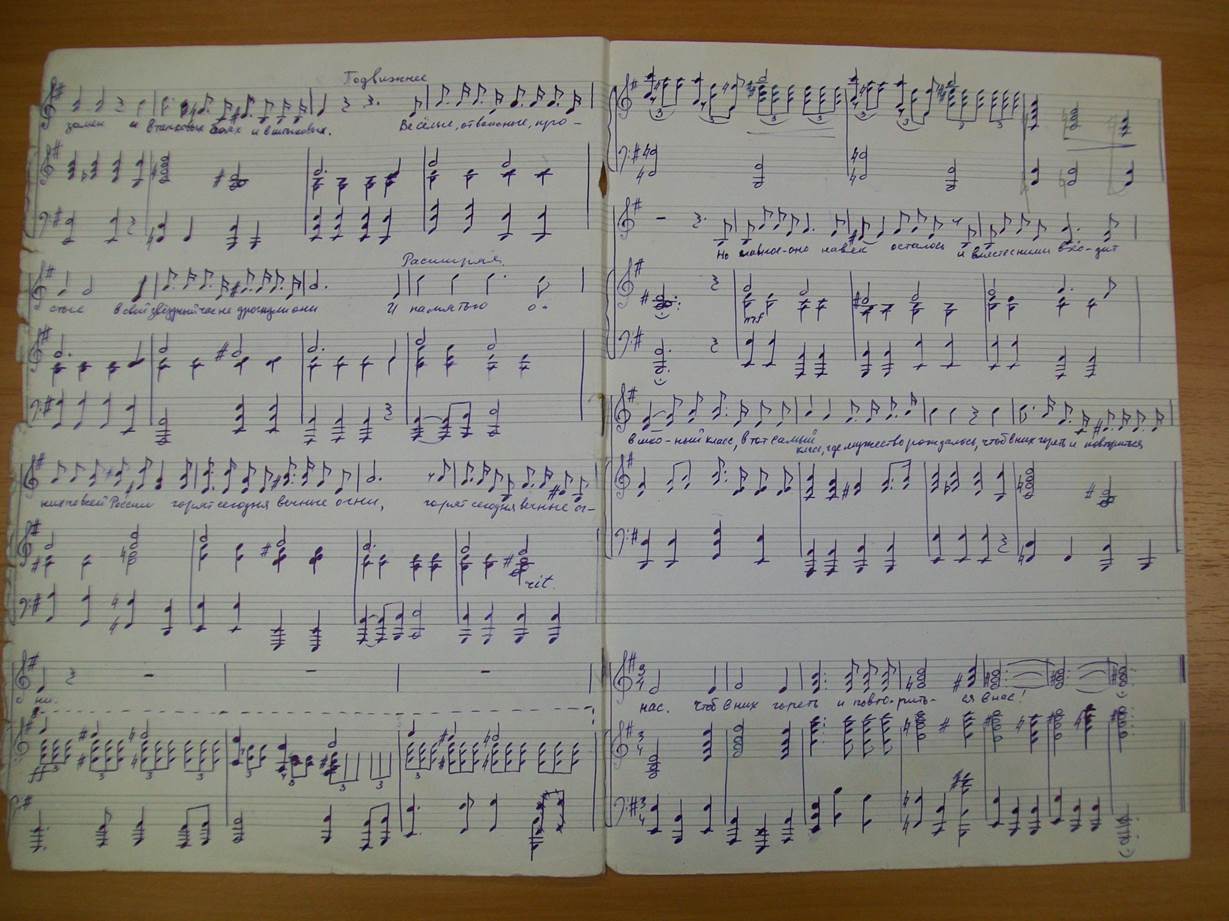 Подвижнее
замен и в танковых боях и в штыковых. Весёлые, отважные, про-
Расширяя
стые в свой звёздный час не дрогнули они И памятью о-
горят сегодня вечные огни, горят сегодня вечные ог-
rit.
ни.
ff
Но главное-оно навек осталось и вместе с ними входит
mf
в шко-ный класс, в тот самый класс, где мужество рождалось, чтоб в них гореть и повториться
нас. Чтоб в них гореть и повто-рить-ся в нас!